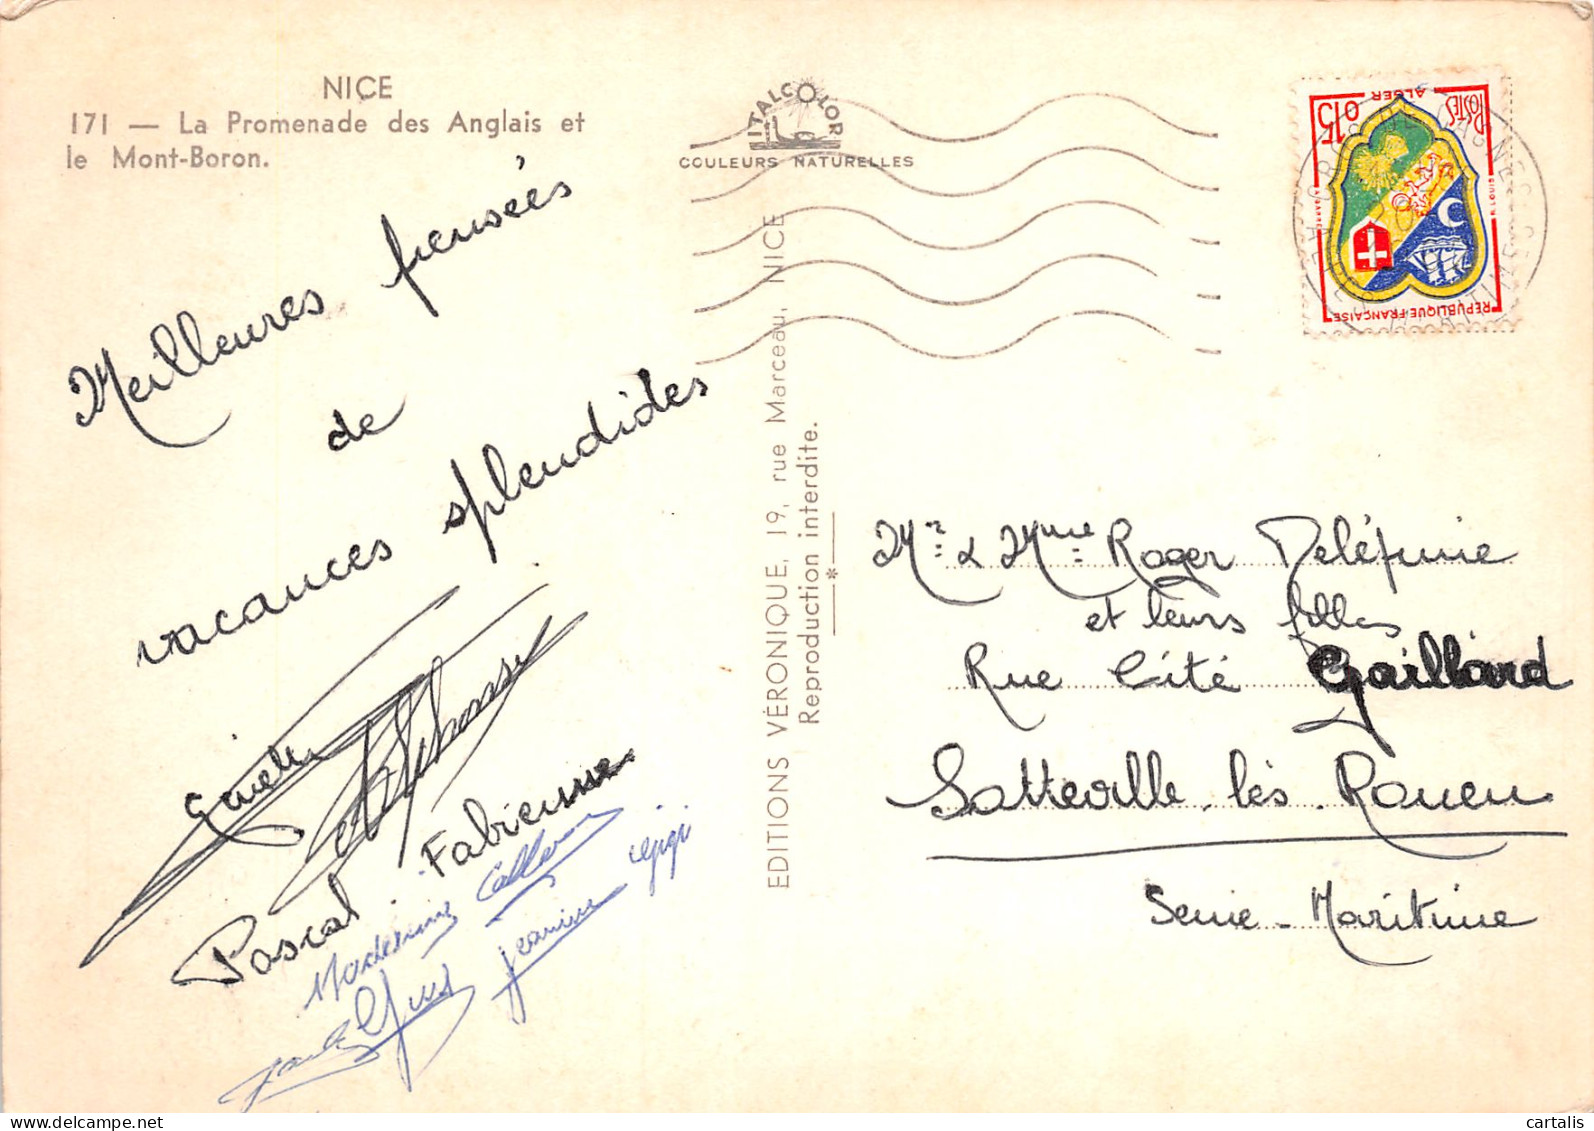 NICE
171 — La Promenade des Anglais et
le Mont-Boron.
ITALCOLOR
COULEURS NATURELLES
Meilleures pensées
de
vacances splendides
Pascal Fabienne
Madeleine
Jeanine Gigi
EDITIONS VÉRONIQUE, 19, rue Marceau, NICE
Reproduction interdite.
POSTES
ALGER
0,15
R. LOUIS
REPUBLIQUE·FRANÇAISE
Mr & Mme Roger Deléfinie
et leurs filles
Rue Cité Gaillard
Sotteville-lès-Rouen
Seine-Maritime
cartalis
delcampe.net